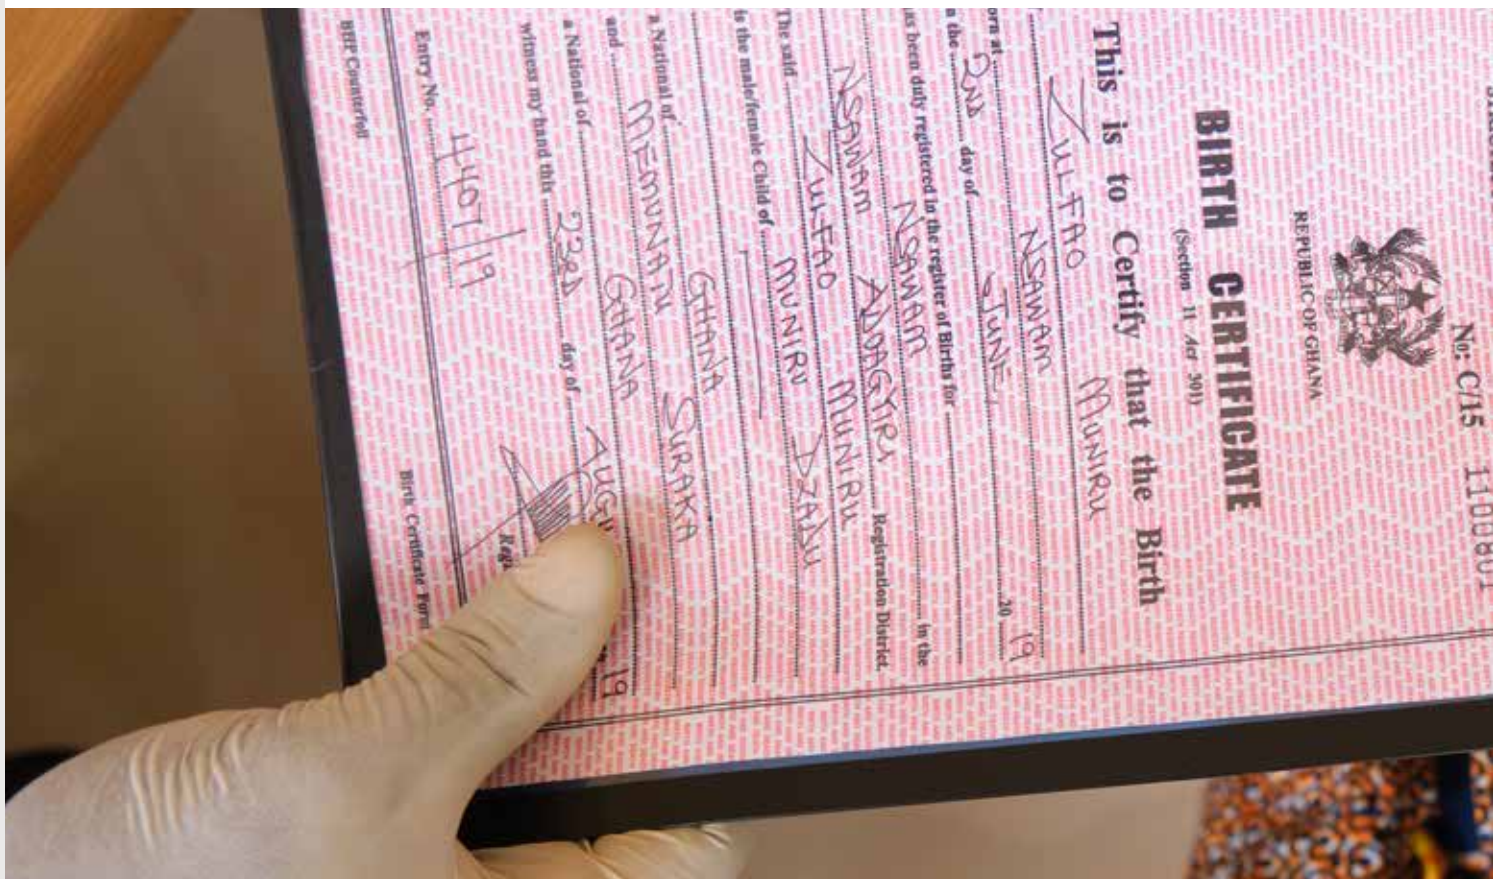 No: C/15 1100801
REPUBLIC OF GHANA
BIRTH CERTIFICATE
(Section 11 Act 301)
This is to Certify that the Birth
ZULFAO MUNIRU
orn at NSAWAM
n the 2ND day of JUNE, 20 19
as been duly registered in the register of Births for
NSAWAM in the
NSAWAM ADOAGYIRI Registration District.
The said ZULFAO MUNIRU
is the male/female Child of MUNIRU DZADU
a National of GHANA
and MEMUNATU SURAKA
a National of GHANA
witness my hand this 23RD day of AUGU 19
Regi
Entry No. 4407/19
BHP Counterfoil Birth Certificate Form